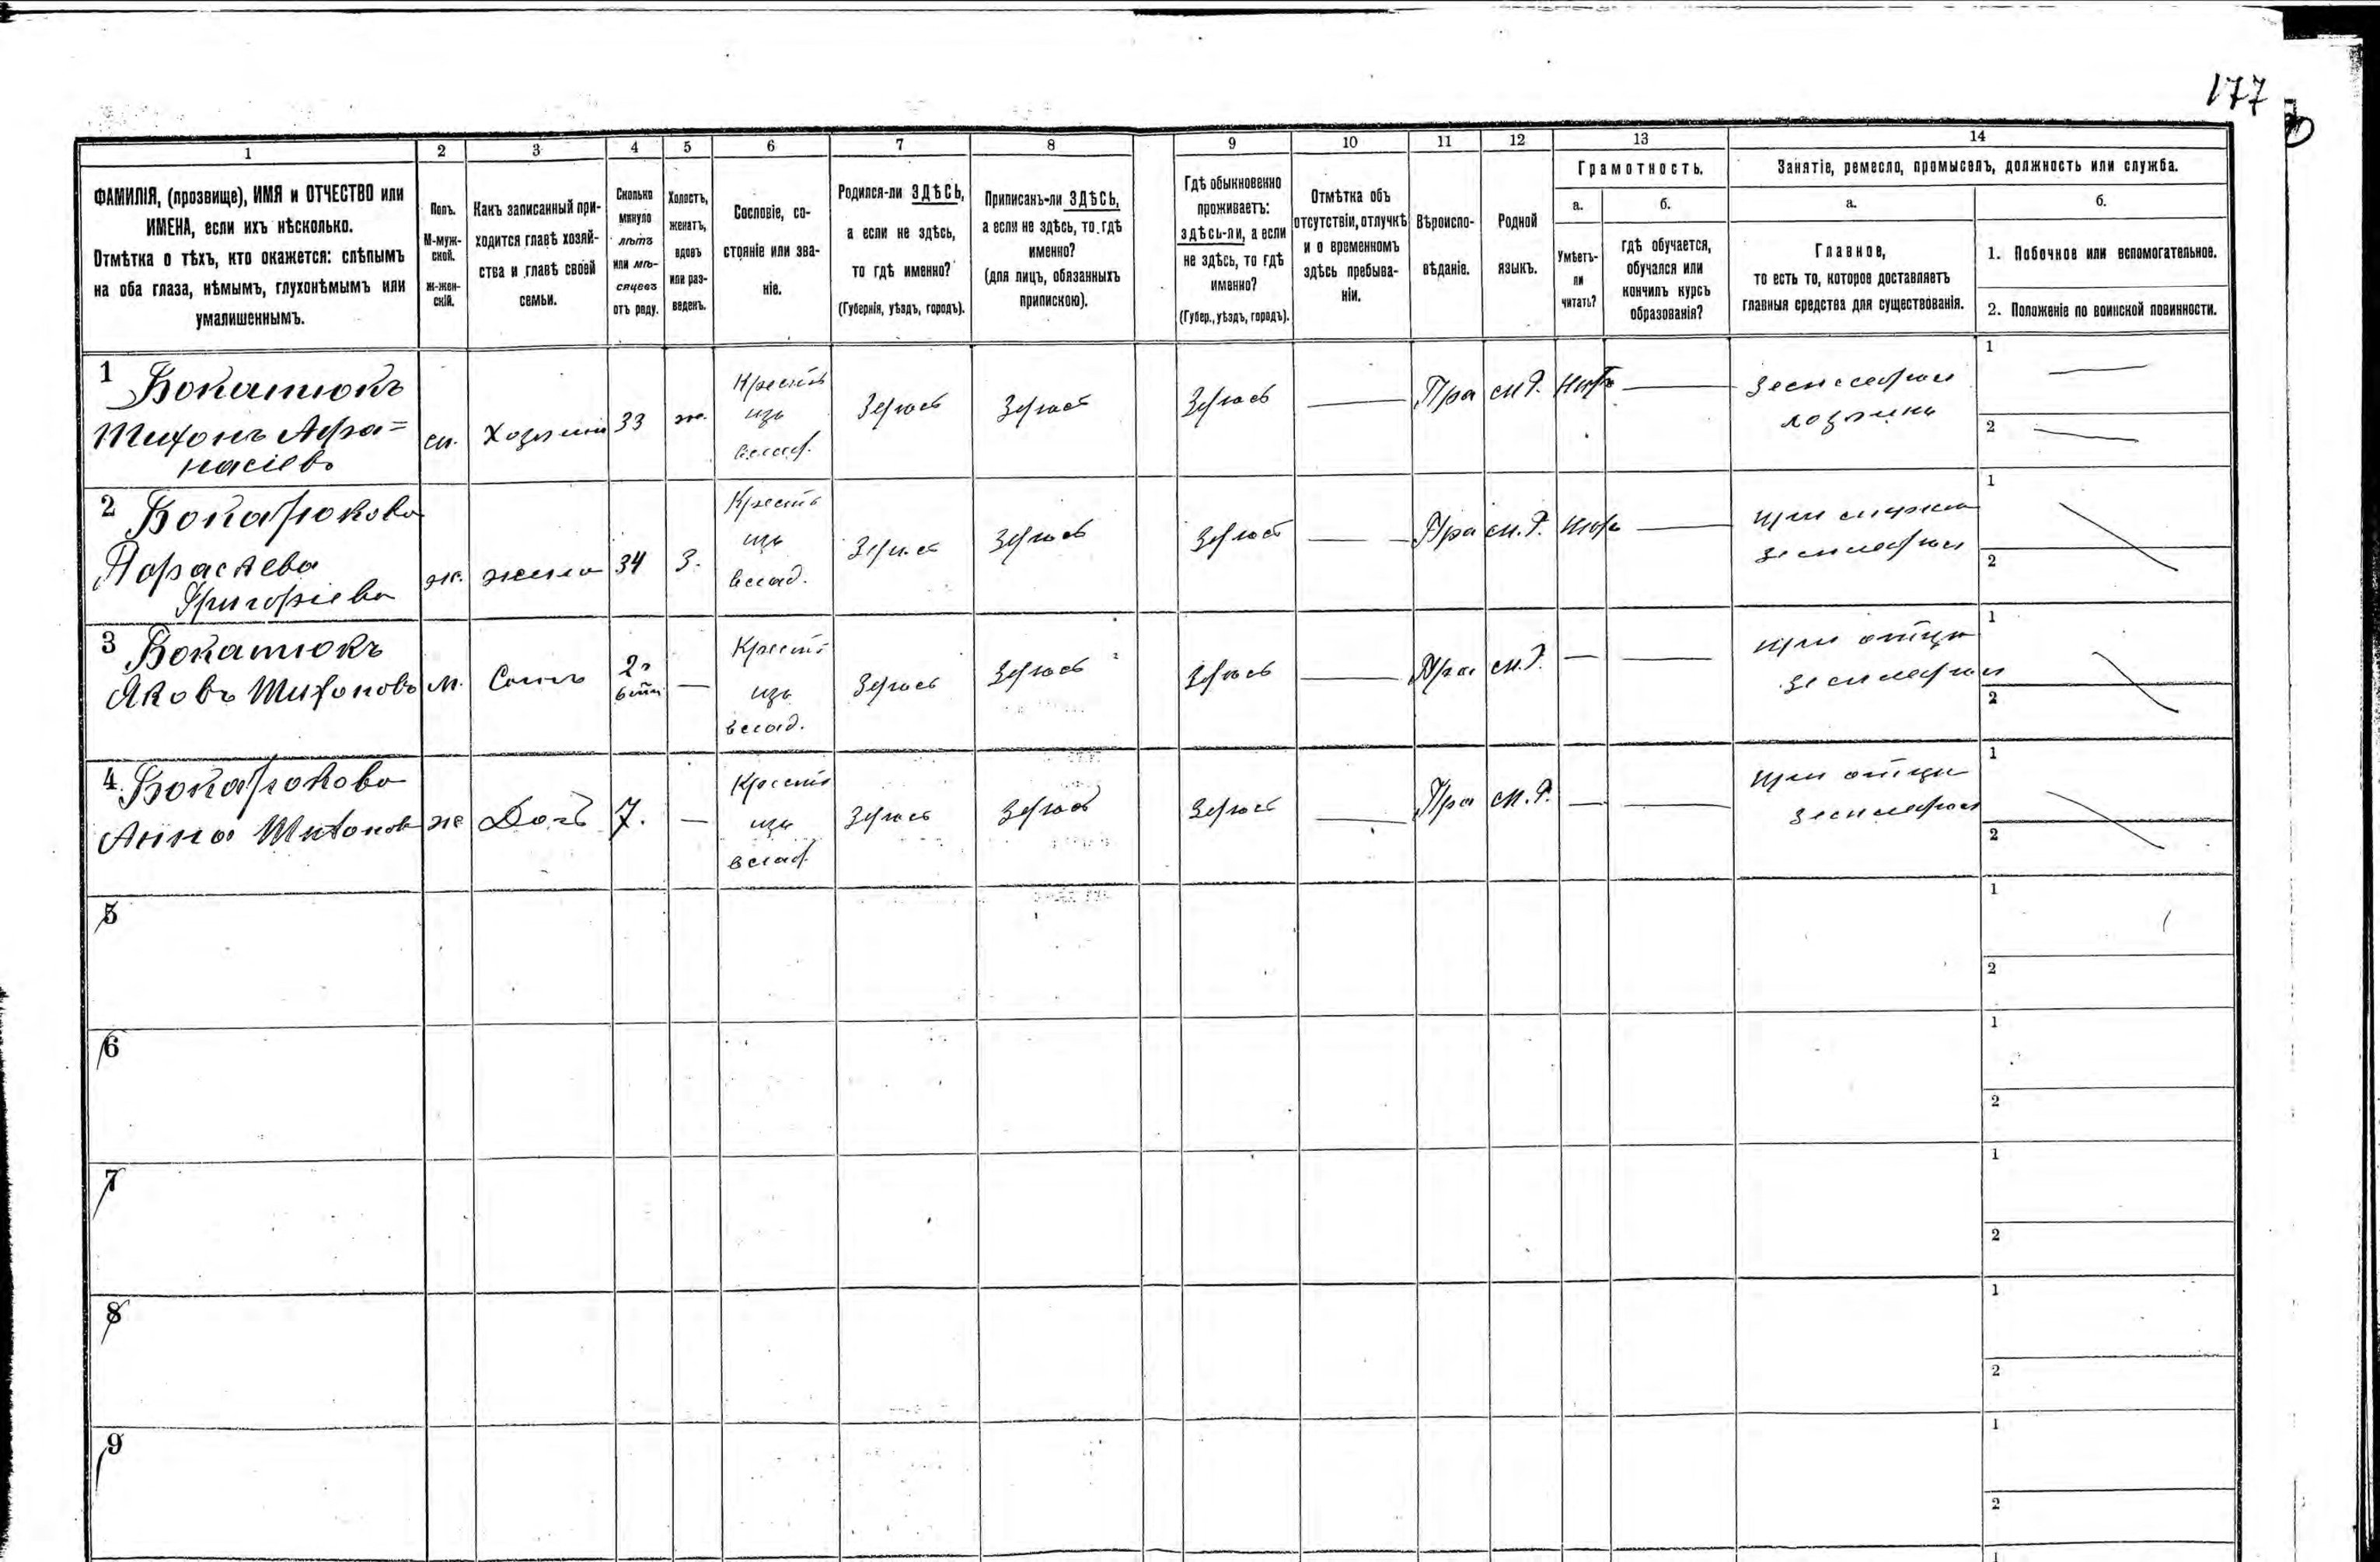 177
1
2
3
4
5
6
7
8
9
10
11
12
13
14
ФАМИЛІЯ, (прозвище), ИМЯ и ОТЧЕСТВО или
ИМЕНА, если ихъ нѣсколько.
Отмѣтка о тѣхъ, кто окажется: слѣпымъ
на оба глаза, нѣмымъ, глухонѣмымъ или
умалишеннымъ.
Полъ.
М-муж-
ской.
ж-жен-
скій.
Какъ записанный при-
ходится главѣ хозяй-
ства и главѣ своей
семьи.
Сколько
минуло
лѣтъ
или мѣ-
сяцевъ
отъ роду.
Холостъ,
женатъ,
вдовъ
или раз-
веденъ.
Сословіе, со-
стояніе или зва-
ніе.
Родился-ли ЗДѢСЬ,
а если не здѣсь,
то гдѣ именно?
(Губернія, уѣздъ, городъ).
Приписанъ-ли ЗДѢСЬ,
а если не здѣсь, то гдѣ
именно?
(для лицъ, обязанныхъ
припискою).
Гдѣ обыкновенно
проживаетъ:
здѣсь-ли, а если
не здѣсь, то гдѣ
именно?
(Губер., уѣздъ, городъ).
Отмѣтка объ
отсутствіи, отлучкѣ
и о временномъ
здѣсь пребыва-
ніи.
Вѣроиспо-
вѣданіе.
Родной
языкъ.
Грамотность.
а.
Умѣетъ-
ли
читать?
б.
гдѣ обучается,
обучался или
кончилъ курсъ
образованія?
Занятіе, ремесло, промыселъ, должность или служба.
а.
Главное,
то есть то, которое доставляетъ
главныя средства для существованія.
б.
1. Побочное или вспомогательное.
2. Положеніе по воинской повинности.
1
Бокатюкъ
Тихонъ Афа=
насіевъ
м.
Хозяинъ
33
ж.
Крестъ
изъ
влад.
Здѣсь
Здѣсь
Здѣсь
Пра
м.Р.
Нѣтъ
Земледѣлія
хозяинъ
1
2
2
Бокатюкова
Параскева
Григоріева
ж.
жена
34
З.
Крестъ
изъ
влад.
Здѣсь
Здѣсь
Здѣсь
Пра
м.Р.
Нѣтъ
При мужѣ
земледѣлія
1
2
3
Бокатюкъ
Яковъ Тихоновъ
м.
Сынъ
Крестъ
изъ
влад.
Здѣсь
Здѣсь
Здѣсь
Пра
м.Р.
При отцѣ
земледѣлія
1
2
4.
Бокатюкова
Анна Тихонов
ж
Дочь
7.
Крестъ
изъ
влад.
Здѣсь
Здѣсь
Здѣсь
Пра
м.Р.
При отцѣ
земледѣлія
1
2
5
1
2
6
1
2
7
1
2
8
1
2
9
1
2
1